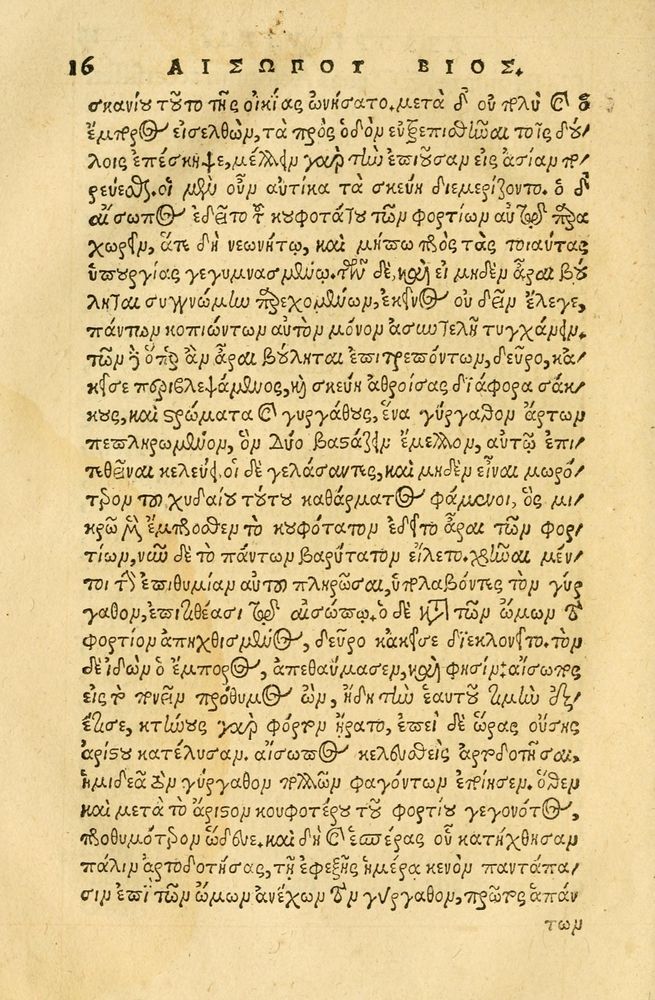 16 ΑΙΣΩΠΟΥ ΒΙΟΣ.
σκανίου τοῦτο τῆς οἰκίας ὠνήσατο. μετὰ δ' οὐ πολὺ καὶ ὁ
ἔμπορος εἰσελθὼν, τὰ πρὸς ὁδὸν εὐτρεπισθῆναι τοῖς δού/
λοις ἐπέσκηψε, μέλλειν γὰρ τὴν ἐπιοῦσαν εἰς ἀσίαν πο/
ρεύεσθαι. οἱ μὲν οὖν αὐτίκα τὰ σκεύη διεμερίζοντο. ὁ δ'
αἴσωπος ἐδεῖτο τὸ κουφότατον τῶν φορτίων αὐτῷ παρα
χωρεῖν, ἅτε δὴ νεωνήτῳ, καὶ μήπω πρὸς τὰς τοιαύτας
ὑπουργίας γεγυμνασμένῳ. τῶν δὲ, καὶ εἰ μηδὲν ἆραι βού
ληται συγγνώμην παρεχομένων, ἐκεῖνος οὐ δεῖν ἔλεγε,
πάντων κοπιώντων αὐτὸν μόνον ἀσυντελῆ τυγχάνειν.
τῶν δ' ὅπερ ἂν ἆραι βούληται ἐπιτρεπόντων, δεῦρο, κα/
κεῖσε περιβλεψάμενος, καὶ σκεύη ἀθροίσας διάφορα σάκ/
κους, καὶ στρώματα καὶ γυργάθους, ἕνα γύργαθον ἄρτων
πεπληρωμένον, ὃν δύο βαστάζειν ἔμελλον, αὐτῷ ἐπι/
τεθῆναι κελεύει. οἱ δὲ γελάσαντες, καὶ μηδὲν εἶναι μωρό/
τερον τοῦ χυδαίου τούτου καθάρματος φάμενοι, ὃς μι/
κρῷ μὲν ἔμπροσθεν τὸ κουφότατον ἐδεῖτο ἆραι τῶν φορ/
τίων, νῦν δὲ τὸ πάντων βαρύτατον εἵλετο. χρῆναι μέν/
τοι τὴν ἐπιθυμίαν αὐτοῦ πληρῶσαι, ὑπολαβόντες τὸν γύρ
γαθον, ἐπιτιθέασι τῷ αἰσώπῳ. ὁ δὲ κατὰ τῶν ὤμων τὸ
φορτίον ἀπηχθισμένος, δεῦρο κἀκεῖσε διεκλονεῖτο. τὸν
δὲ ἰδὼν ὁ ἔμπορος, ἀπεθαύμασεν, καὶ φησίν: αἴσωπος
εἰς τὸ πονεῖν πρόθυμος ὢν, ἤδη τὴν ἑαυτοῦ τιμὴν ἐξ/
έτισε, κτήνους γὰρ φόρτον ἤρατο, ἐπεὶ δὲ ὥρας οὔσης
ἀρίστου κατέλυσαν. αἴσωπος κελευσθεὶς ἀρτοδοτῆσαι,
ἡμιδεᾶ τὸν γύργαθον πολλῶν φαγόντων ἐποίησεν. ὅθεν
καὶ μετὰ τὸ ἄριστον κουφοτέρου τοῦ φορτίου γεγονότος,
προθυμότερον ὥδευε. καὶ δὴ καὶ ἑσπέρας οὗ κατήχθησαν
πάλιν ἀρτοδοτήσας, τῇ ἐφεξῆς ἡμέρᾳ κενὸν παντάπα/
σιν ἐπὶ τῶν ὤμων ἀνέχων τὸν γύργαθον, πρῶτος ἁπάν
των